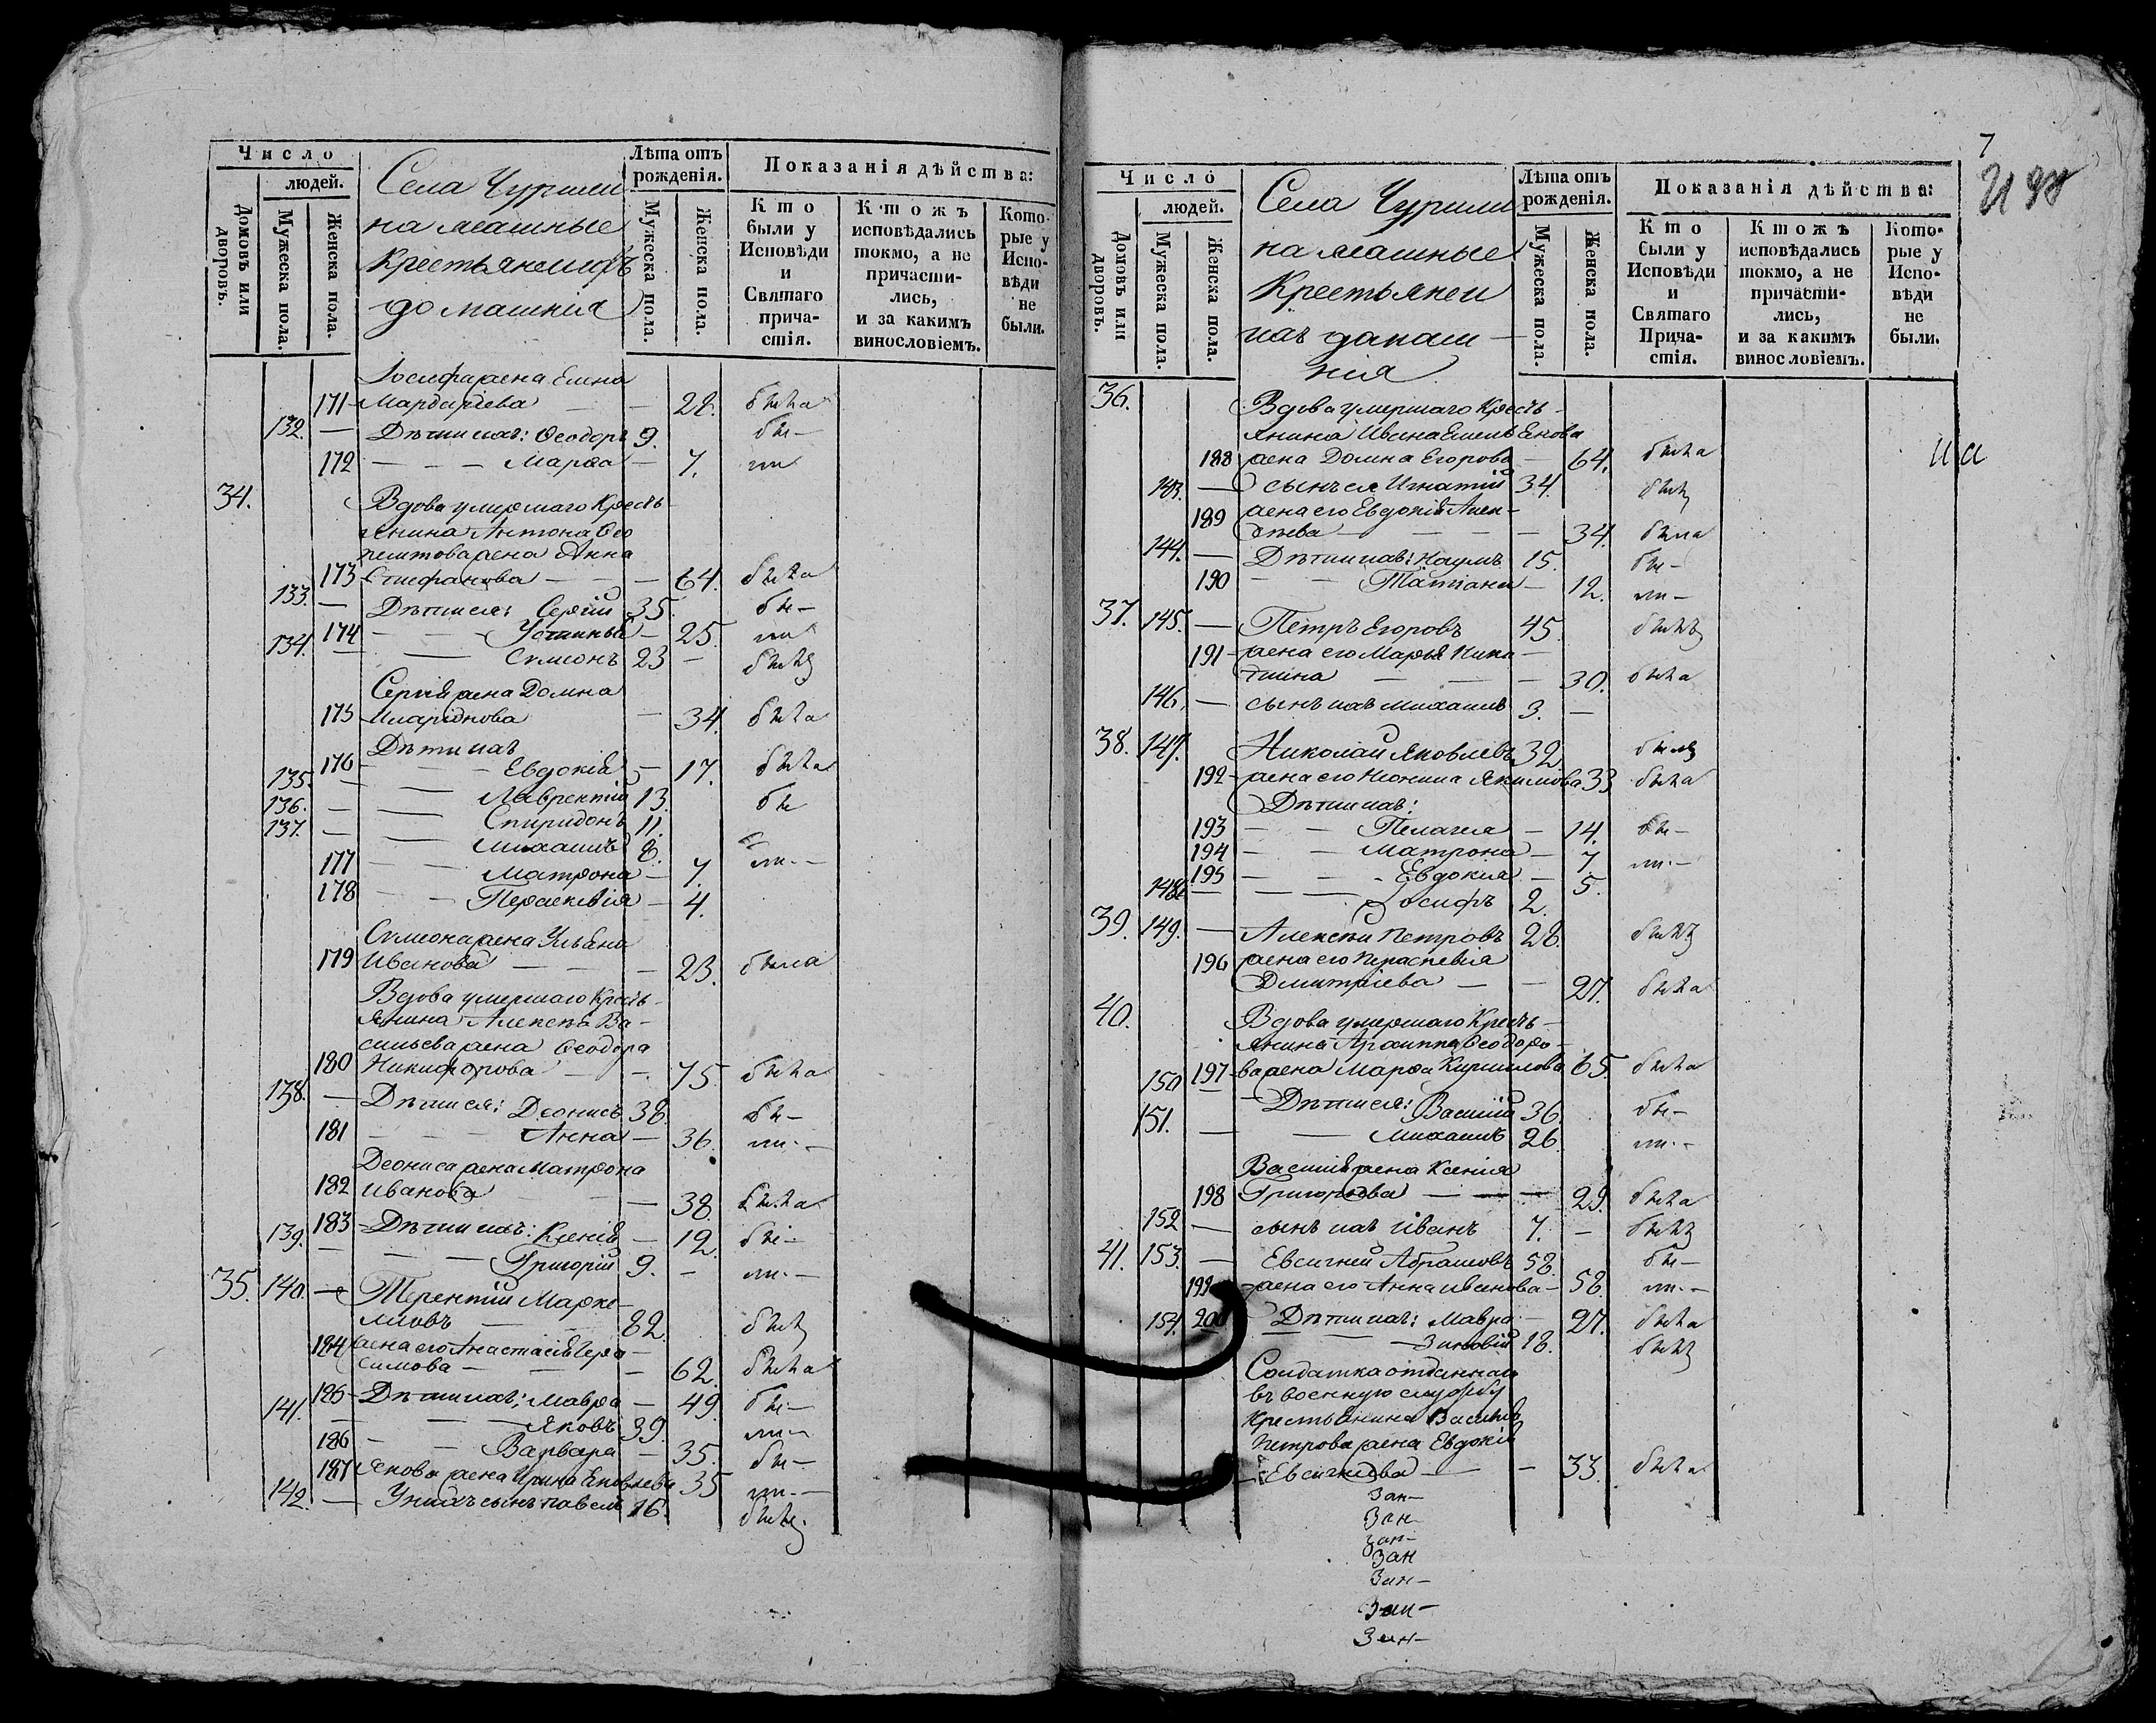 Число
людей.
Домовъ или дворовъ.
Мужеска пола.
Женска пола.
Села Чурили
на
Крестьяне и ихъ
домашнія
Лѣта отъ рожденія.
Мужеска пола.
Женска пола.
Показанія дѣйства:
Кто были у Исповѣди и Святаго причастія.
Ктожъ исповѣдались токмо, а не причастились, и за какимъ винословіемъ.
Которые у Исповѣди не были.
Іосифа жена Елена
171 Мардаріева — 28. была
132. — Дѣти ихъ: Ѳеодоръ 9. бы—
172 — — — Марѳа — 7. ли
34. Вдова умершаго Кресть-
янина Антона Ѳео
жена Анна
173 Стефанова — — — 64. была
133. — Дѣти ея: Сергій 35. бы—
174 — — Устинья — 25. ли
134. — — Симеонъ 23 — былъ
Сергія жена Домна
175 Иларіонова — 34. была
Дѣти ихъ
176 — — Евдокія — 17. была
135. — — Лаврентій 13. бы
136. — — Спиридонъ 11.
137. — — Михаилъ 8.
177 — — Матрона — 7. ли.—
178 — — Параскевія — 4.
Симеона жена Ульяна
179 Иванова — — — 23. была
Вдова умершаго Кресть-
янина Алексѣя Ва-
сильева жена Ѳеодора
180 Никифорова — — 75. была
138. — Дѣти ея: Деонисъ 38. бы—
181 — — — Анна — 36. ли.—
Деониса жена Матрона
182 Иванова — — — 38. была
183 Дѣти ихъ: Ксенія — 12. бы—
139. — — — Григорій 9. — ли.—
35. 140. — Терентій Марке-
ловъ — — 82. былъ
184 жена его Анастасія Гера-
симова — — — 62. была
185 Дѣти ихъ: Мавра — 49. бы—
141. — — — Яковъ 39. ли—
186 — — Варвара — 35. бы—
187 Якова жена Ирина Яковлева 35 ли.—
142. — У нихъ сынъ Павелъ 16. былъ.
7
Число
людей.
Домовъ или дворовъ.
Мужеска пола.
Женска пола.
Села Чурили
на
Крестьяне и
ихъ домаш-
нія
Лѣта отъ рожденія.
Мужеска пола.
Женска пола.
Показанія дѣйства:
Кто были у Исповѣди и Святаго Причастія.
Ктожъ исповѣдались токмо, а не причастились, и за какимъ винословіемъ.
Которые у Исповѣди не были.
36. Вдова умершаго Кресть-
янина Ивана Емельянова
188 жена Домна Егорова — 64. была
143. — сынъ ея Игнатій 34. былъ
189 жена его Евдокія Алек-
сѣева — — — — 34. была
144. — Дѣти ихъ: Наумъ 15. бы—
190 — — Татіана — 12. ли—
37. 145. — Петръ Егоровъ 45. былъ
191 жена его Марья Ники-
тина — — — 30. была
146. — сынъ ихъ Михаилъ 3. —
38. 147. Николай Яковлевъ 32. былъ
192 жена его Якимова 33 была
Дѣти ихъ:
193 — — Пелагея — 14. бы—
194 — — Матрона — 7. ли.—
195 — — Евдокия — 5.
148. — — — Іосифъ 2.
39. 149. — Алексѣй Петровъ 28. былъ
196 жена его Параскевія
Димитріева — — 27. была
40. Вдова умершаго Кресть-
янина Архиппа Ѳеодоро-
197 ва жена Марѳа Кириллова 65. была
150 — Дѣти ея: Василій 36. бы—
151. — — Михаилъ 26. ли.—
Василія жена Ксенія
198 Григорьева — — — 29. была
152. — сынъ ихъ Иванъ 7. — былъ
41. 153. — Евсигней Абрамовъ 58. бы—
199 жена его Анна Иванова — 58. ли.—
200 Дѣти ихъ: Мавра — 27. была
154. — — Зиновій 18. былъ
Солдатка отданнаго
въ военную службу
Крестьянина Василія
Петрова жена Евдокія
Евсигнева — — 33. была
Зан—
Зан—
Зан—
Зан
Зан—
Зан—
Зан—